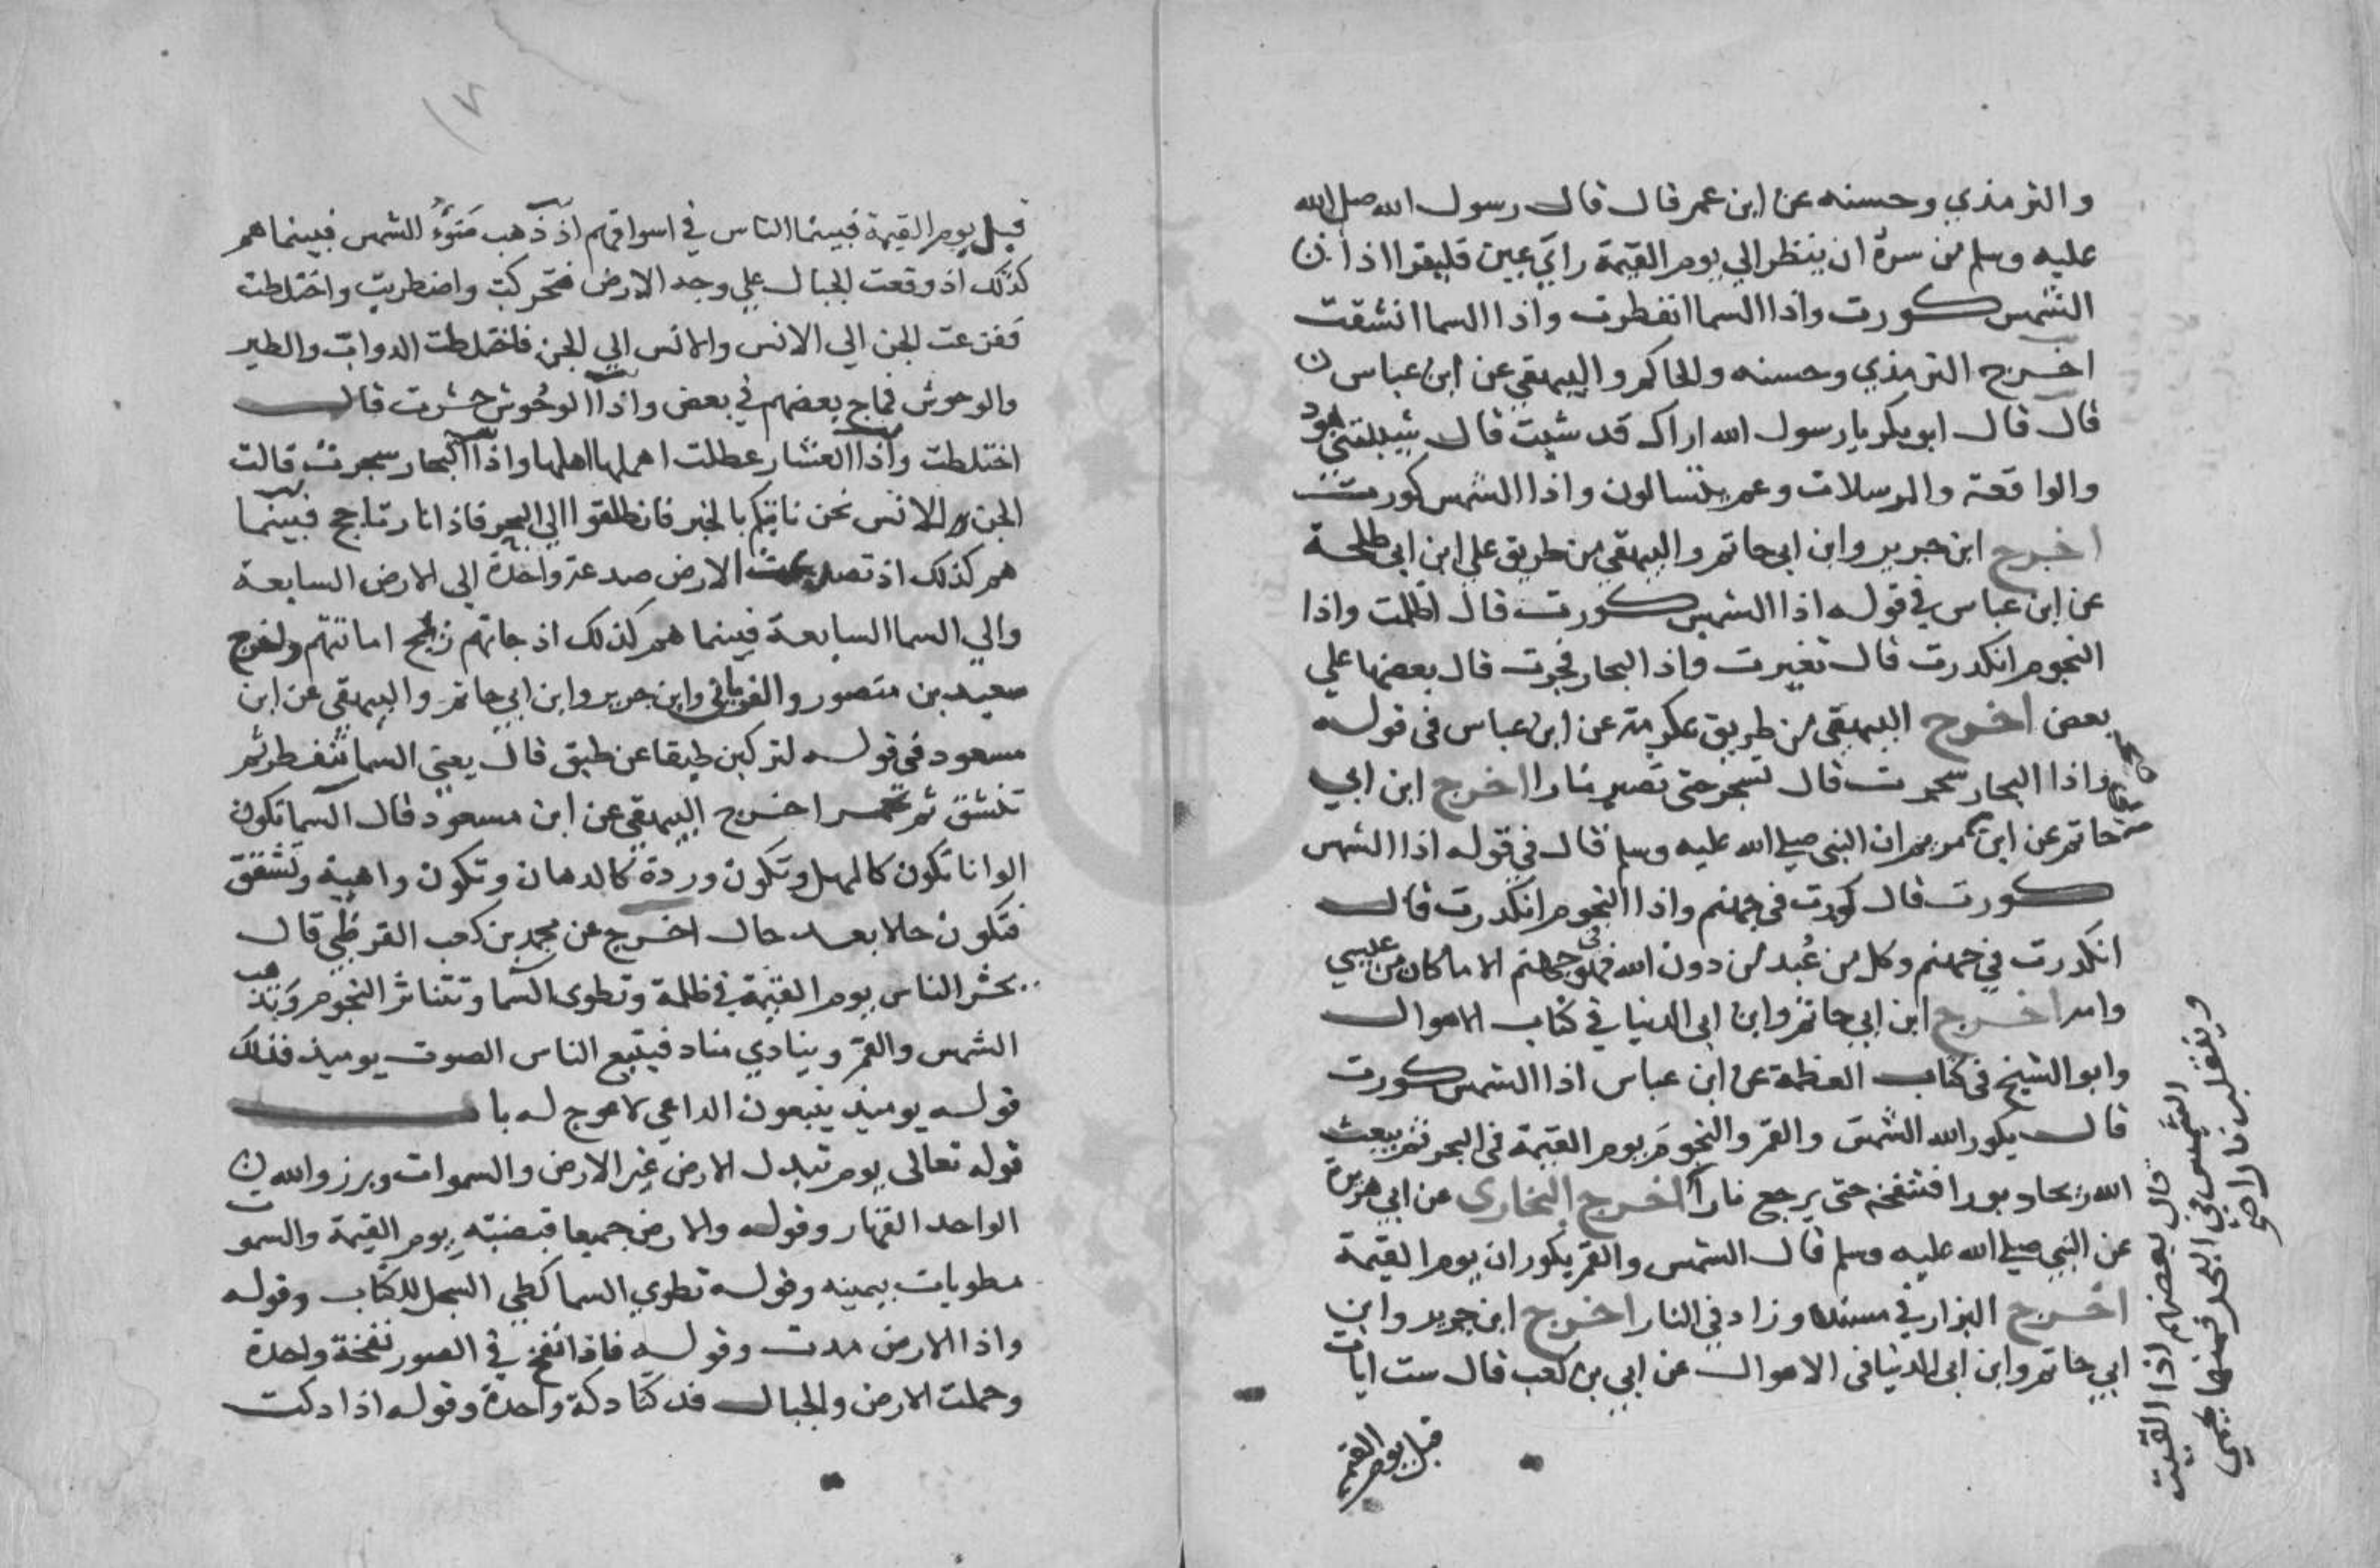 والترمذي وحسنه عن ابن عمر قال قال رسول الله صلى الله
عليه وسلم من سره ان ينظر الي يوم القيمة راي عين فليقرا اذا
الشمس كورت واذا السما انفطرت واذا السما انشقت
اخرج الترمذي وحسنه والحاكم والبيهقي عن ابن عباس
قال قال ابو بكر يا رسول الله اراك قد شبت قال شيبتني هود
والواقعة والمرسلات وعم يتسالون واذا الشمس كورت
اخرج ابن جرير وابن ابي حاتم والبيهقي من طريق علي ابن ابي طلحة
عن ابن عباس في قوله اذا الشمس كورت قال اظلمت واذا
النجوم انكدرت قال تغيرت واذا البحار فجرت قال بعضها علي
بعض اخرج البيهقي من طريق عكرمة عن ابن عباس في قوله
واذا البحار سجرت قال تسجر حتى تصير نارا اخرج ابن ابي
حاتم عن ابن مريم ان النبي صلي الله عليه وسلم قال في قوله اذا الشمس
كورت قال كورت في جهنم واذا النجوم انكدرت قال
انكدرت في جهنم وكل من عُبد من دون الله فهو في جهنم الا ما كان من عيسي
وامه اخرج ابن ابي حاتم وابن ابي الدنيا في كتاب الاهوال
وابو الشيخ في كتاب العظمة عن ابن عباس اذا الشمس كورت
قال يكور الله الشمس والقمر والنجوم يوم القيمة في البحر ثم يبعث
الله ريحا دبورا فتنفخه حتى يرجع نارا اخرج البخاري عن ابي هريرة
عن النبي صلي الله عليه وسلم قال الشمس والقمر يكوران يوم القيمة
اخرج البزار في مسنده وزاد في النار اخرج ابن جرير وابن
ابي حاتم وابن ابي الدنيا في الاهوال عن ابي بن كعب قال ست ايات
قبل يوم القيمة
قال بعضهم اذا القيت
الشمس في البحر فمنها يحمي
وينقلب نارا
١٧
قبل يوم القيمة فبينما الناس في اسواقهم اذ ذهب ضوء الشمس فبينما هم
كذلك اذ وقعت الجبال علي وجه الارض فتحركت واضطربت واختلطت
ففزعت الجن الي الانس والانس الي الجن فاختلطت الدواب والطير
والوحوش فماج بعضهم في بعض واذا الوحُوش حشرت قال
اختلطت واذا العشار عطلت اهملها اهلها واذا البحار سجرت قالت
الجن للانس نحن ناتيكم بالخبر فانطلقوا الي البحر فاذا نار تاجج فبينما
هم كذلك اذ تصدعت الارض صدعة واحدة الي الارض السابعة
والي السما السابعة فبينما هم كذلك اذ جاتهم ريح اماتتهم واخرج
سعيد بن منصور والفريابي وابن جرير وابن ابي حاتم والبيهقي عن ابن
مسعود في قوله لتركبن طبقا عن طبق قال يعني السما تنفطر ثم
تنشق ثم تحمر اخرج البيهقي عن ابن مسعود قال السما تكون
الوانا تكون كالمهل وتكون وردة كالدهان وتكون واهية وتشقق
فتكون حالا بعد حال اخرج عن محمد بن كعب القرظي قال
يحشر الناس يوم القيمة في ظلمة وتطوي السما وتتناثر النجوم وتذهب
الشمس والقمر وينادي مناد فيتبع الناس الصوت يوميذ فذلك
قوله يوميذ يتبعون الداعي لا عوج له باب
قوله تعالى يوم تبدل الارض غير الارض والسموات وبرزوا لله
الواحد القهار وقوله والارض جميعا قبضته يوم القيمة والسموت
مطويات بيمينه وقوله نطوي السما كطي السجل للكتاب وقوله
واذا الارض مدت وقوله فاذا نفخ في الصور نفخة واحدة
وحملت الارض والجبال فدكتا دكة واحدة وقوله اذا دكت